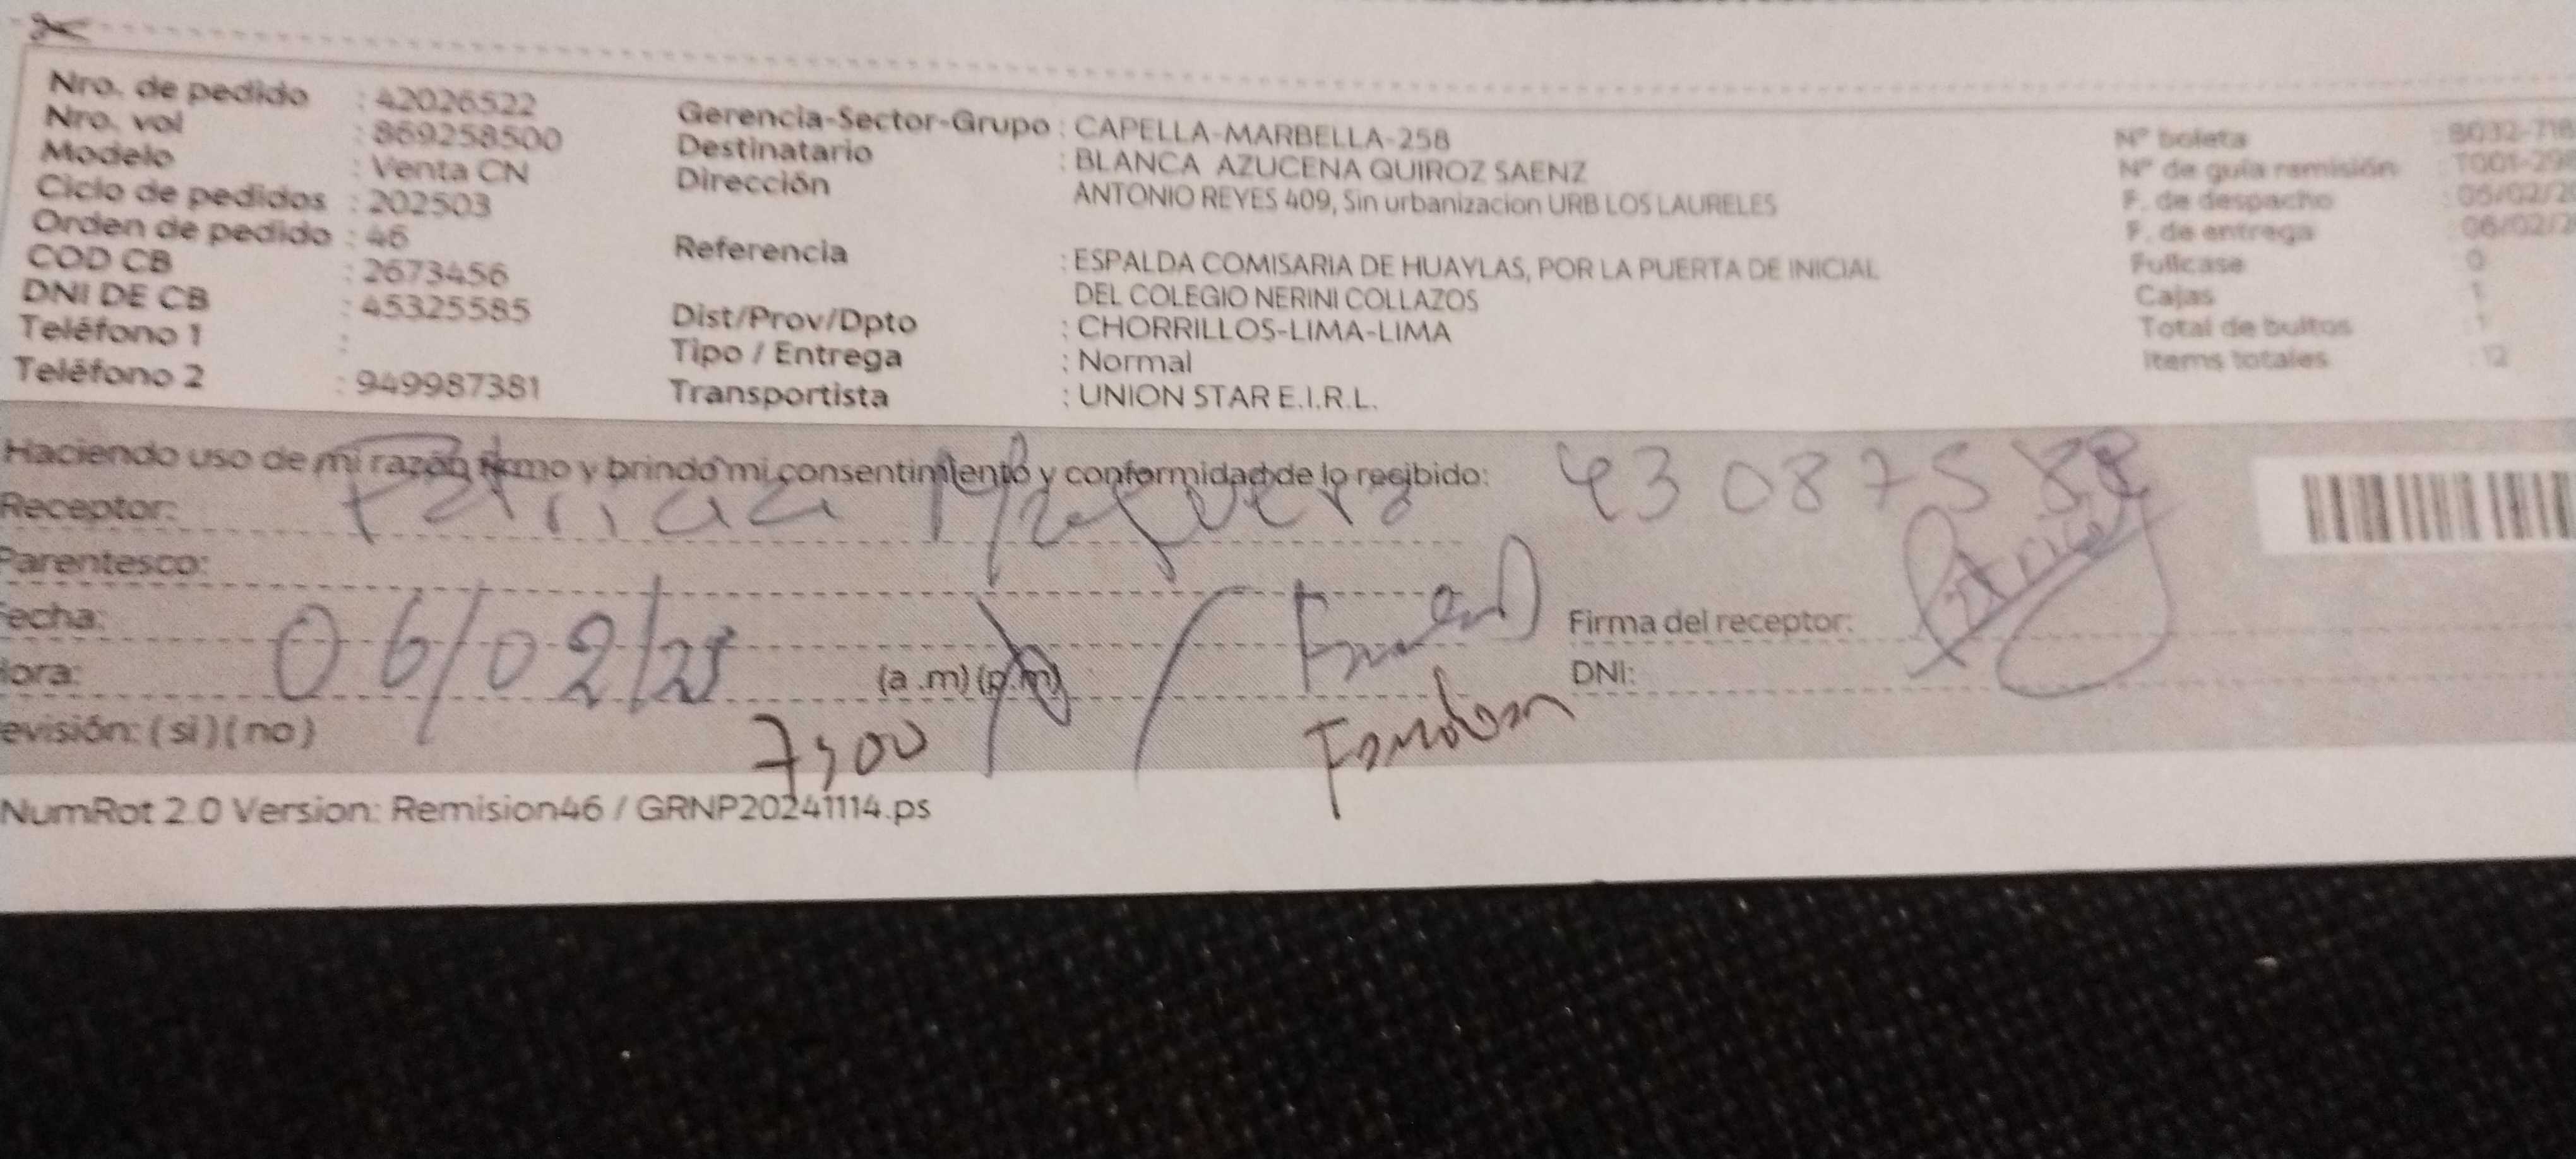 Nro. de pedido : 42026522
Nro. vol : 869258500
Modelo : Venta CN
Ciclo de pedidos : 202503
Orden de pedido : 46
COD CB : 2673456
DNI DE CB : 45325585
Teléfono 1 :
Teléfono 2 : 949987381
Gerencia-Sector-Grupo : CAPELLA-MARBELLA-258
Destinatario : BLANCA AZUCENA QUIROZ SAENZ
Dirección ANTONIO REYES 409, Sin urbanizacion URB LOS LAURELES
Referencia : ESPALDA COMISARIA DE HUAYLAS, POR LA PUERTA DE INICIAL
DEL COLEGIO NERINI COLLAZOS
Dist/Prov/Dpto : CHORRILLOS-LIMA-LIMA
Tipo / Entrega : Normal
Transportista : UNION STAR E.I.R.L.
Nº boleta : B032-718
Nº de guía remisión : T001-29
F. de despacho : 05/02/2
F. de entrega : 06/02/2
Fullcase 0
Cajas 1
Total de bultos : 1
Items totales : 12
Haciendo uso de mi razón firmo y brindo mi consentimiento y conformidad de lo recibido:
Receptor: Patricia
Parentesco:
echa: 06/02/25
ora: (a .m) (p.m)
7:00
evisión: ( si ) ( no )
Firma del receptor: Patricia
DNI:
NumRot 2.0 Version: Remision46 / GRNP20241114.ps